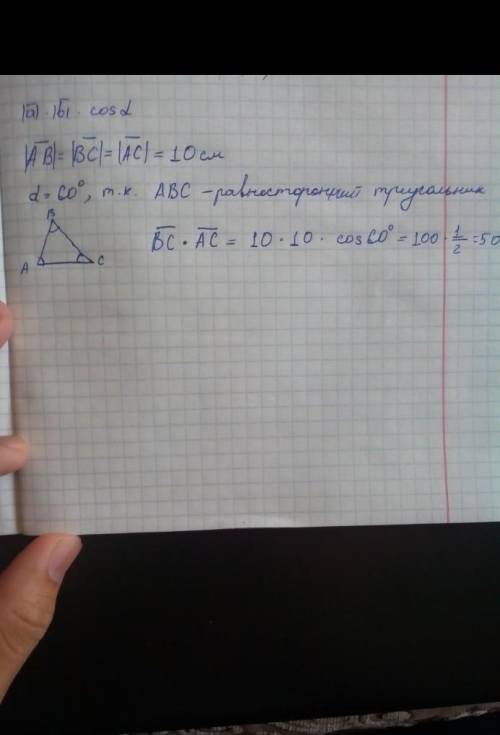 |a̅| · |b̅| · cos α
|A̅B̅| = |B̅C̅| = |A̅C̅| = 10 см
α = 60°, т.к. ABC - равносторонний треугольник
B
A
C
B̅C̅ · A̅C̅ = 10 · 10 · cos 60° = 100 · 1/2 = 50